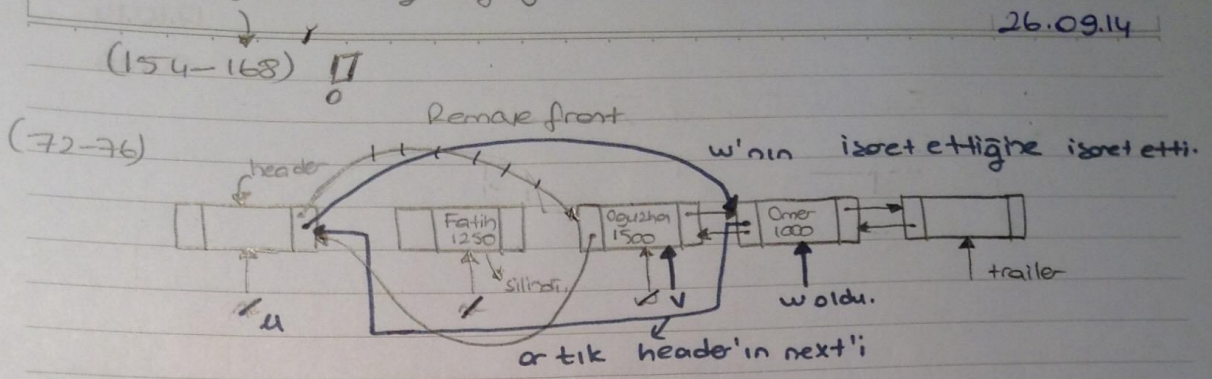 26.09.14
(154-168) !
Remove front
(72-76)
header
w'nın işaret ettiğine işaret etti.
Fatih
1250
Oguzhan
1500
Omer
1000
silindi.
trailer
u
v
w oldu.
artık header'in next'i